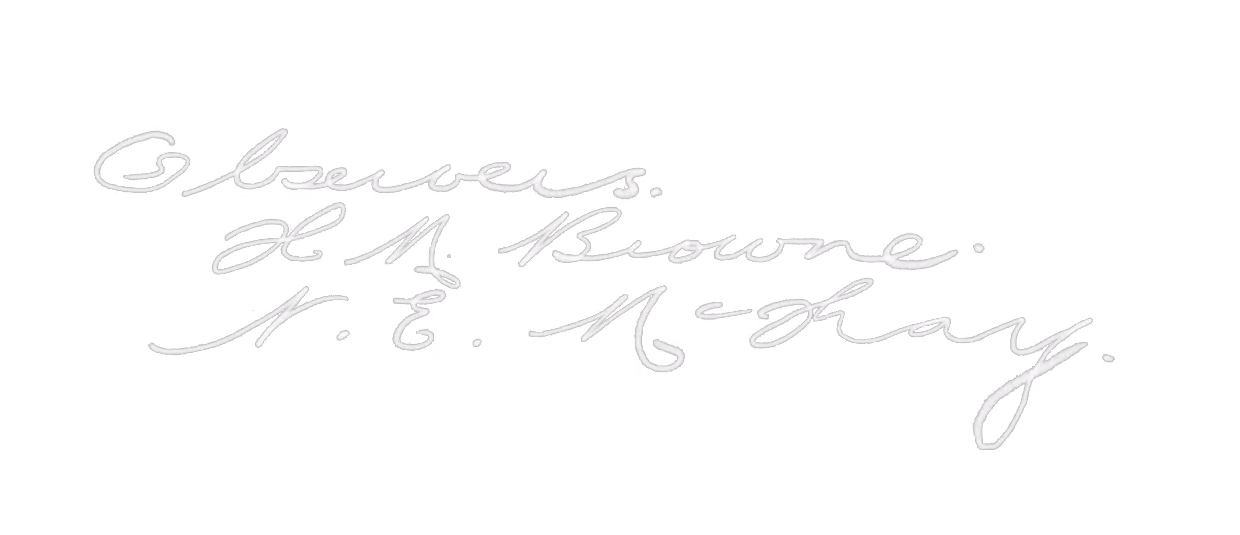 Observers.
H. M. Browne.
N. E. McKay.